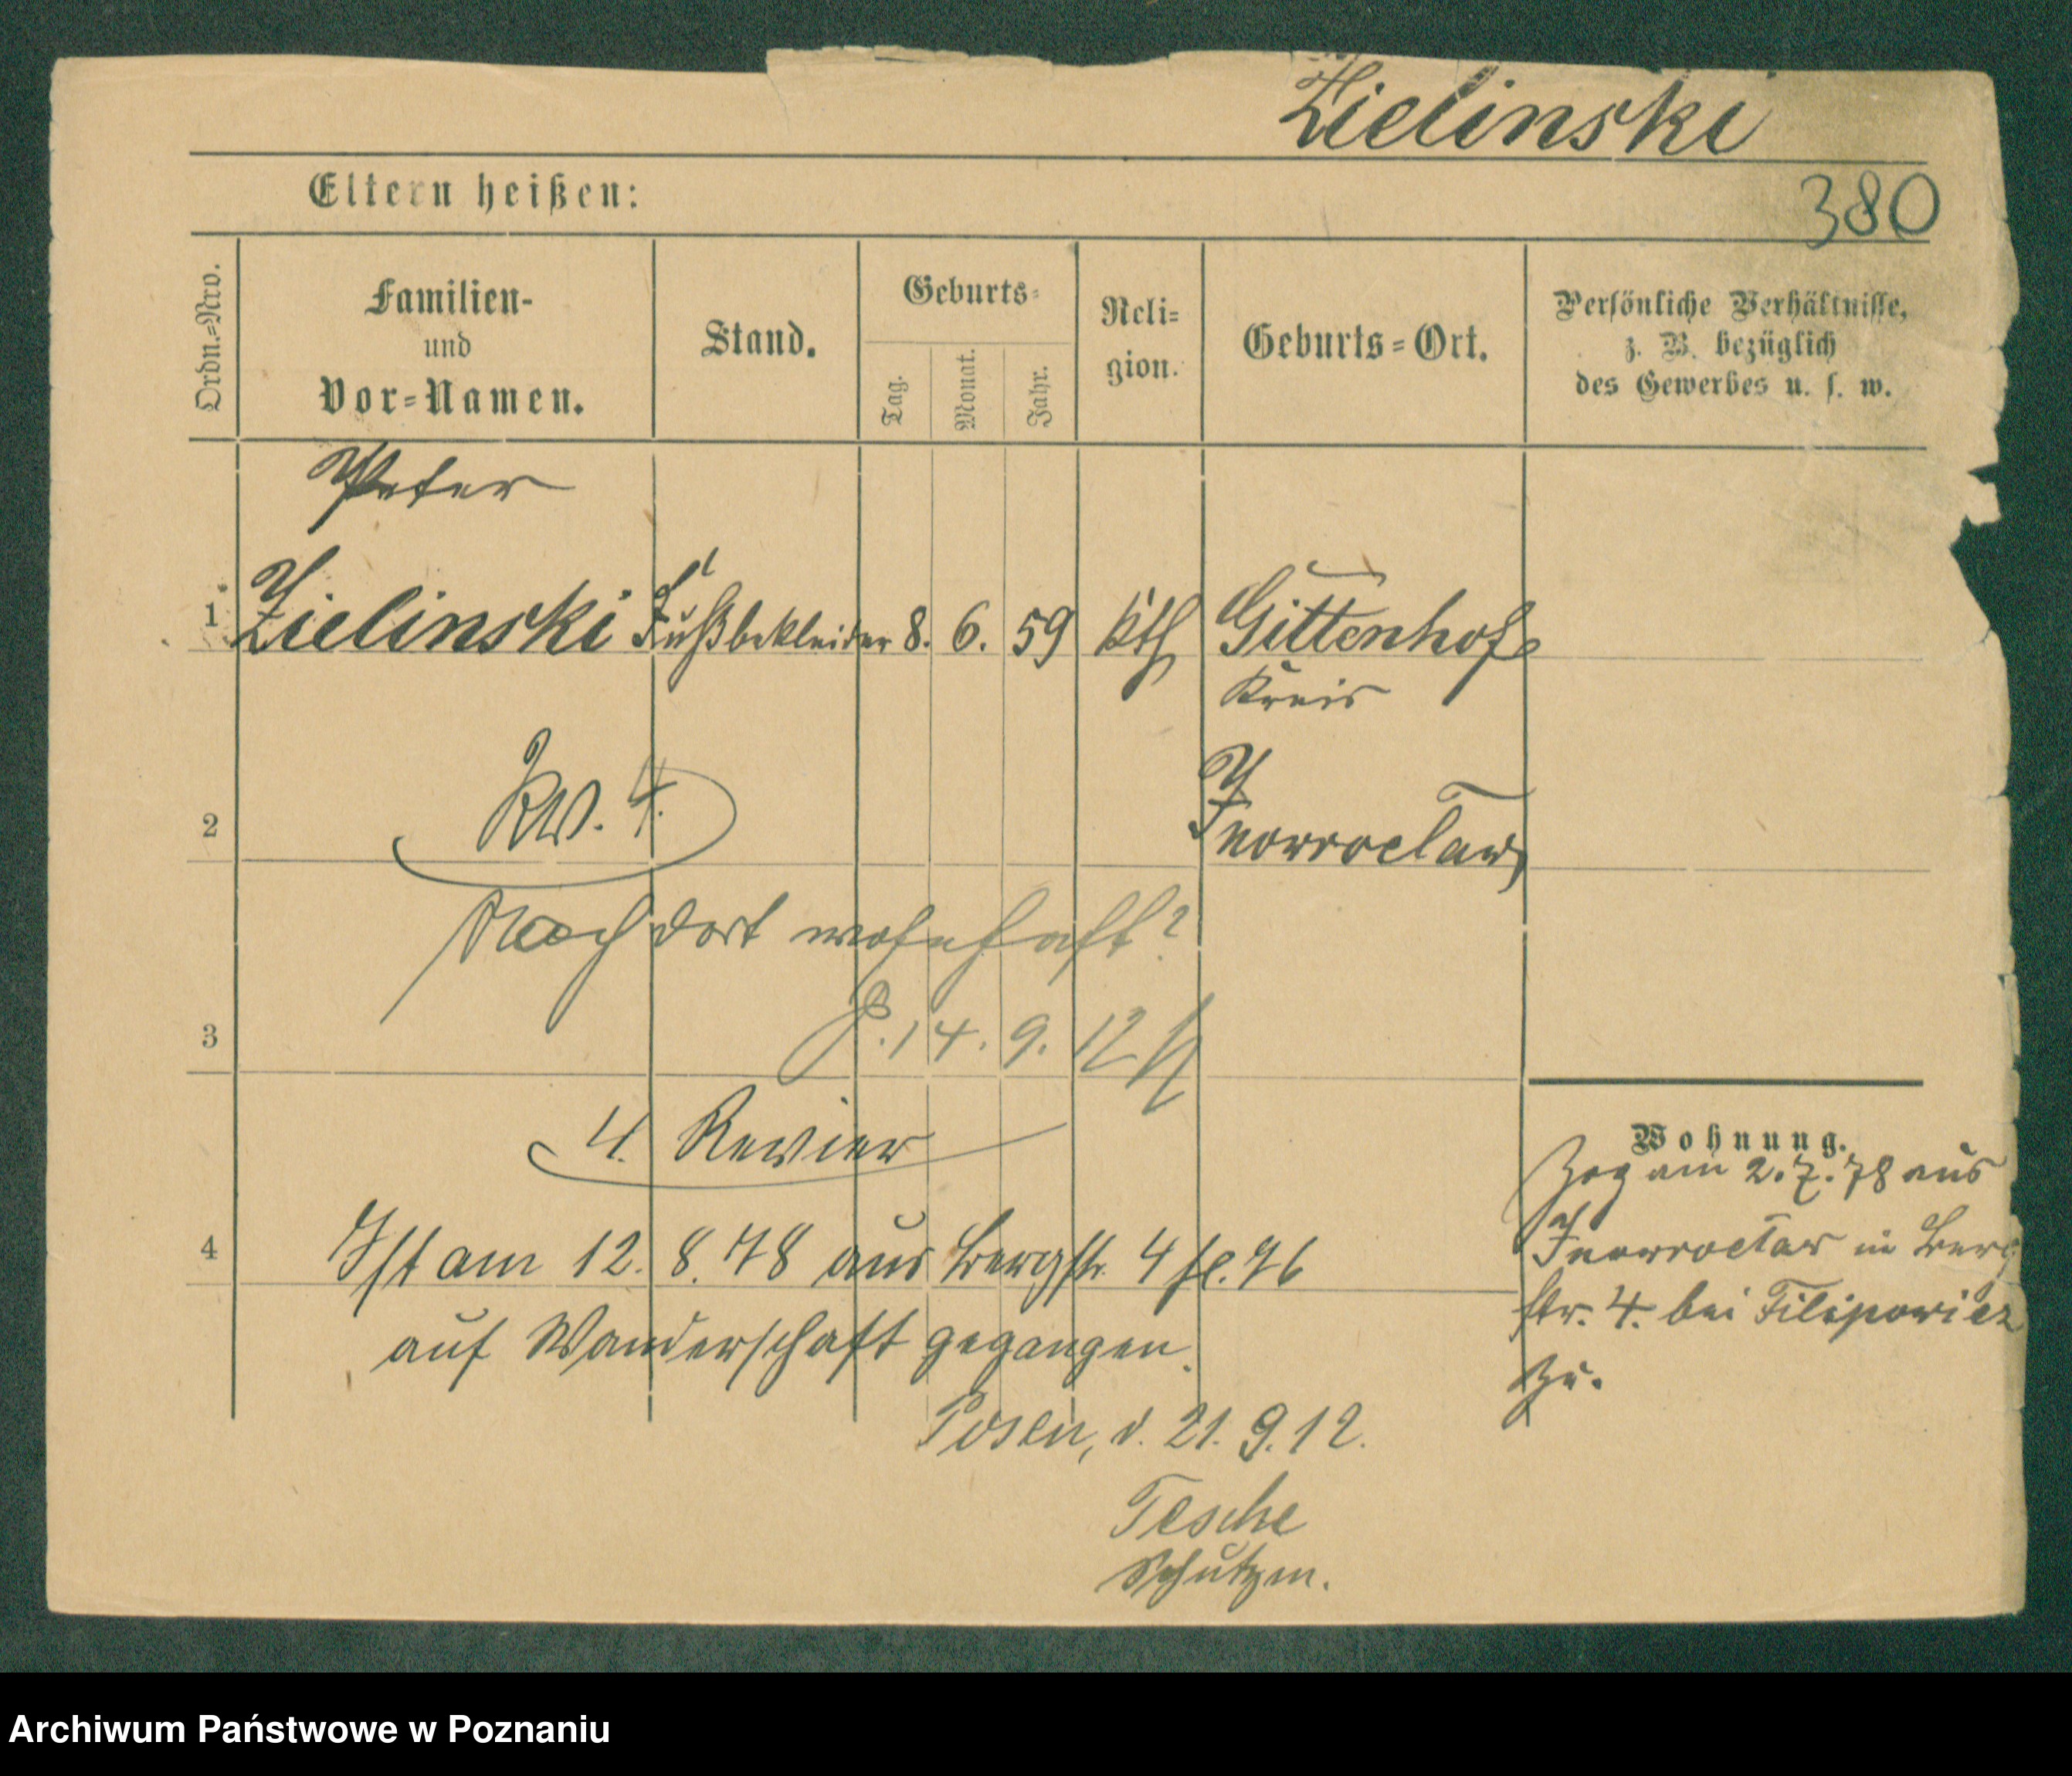 Zielinski
Eltern heißen:
380
Ordn.=Nro.
Familien-
und
Vor=Namen.
Stand.
Geburts=
Tag.
Monat.
Jahr.
Reli=
gion.
Geburts=Ort.
Persönliche Verhältnisse,
z. B. bezüglich
des Gewerbes u. s. w.
Peter
1 Zielinski Fußbekleider 8. 6. 59 kth Gittenhof
Kreis
2 Rw. 4. Inowroclaw
Noch dort wohnhaft?
3 P. 14. 9. 12
4. Revier
Wohnung.
Zog am 2.7.78 aus
Inowroclaw in Berg
str. 4. bei Filipowicz
zu.
4 Ist am 12. 8. 78 aus Bergstr. 4 fl. 76
auf Wanderschaft gegangen.
Posen, d. 21. 9. 12.
Tesche
Schutzm.
Archiwum Państwowe w Poznaniu